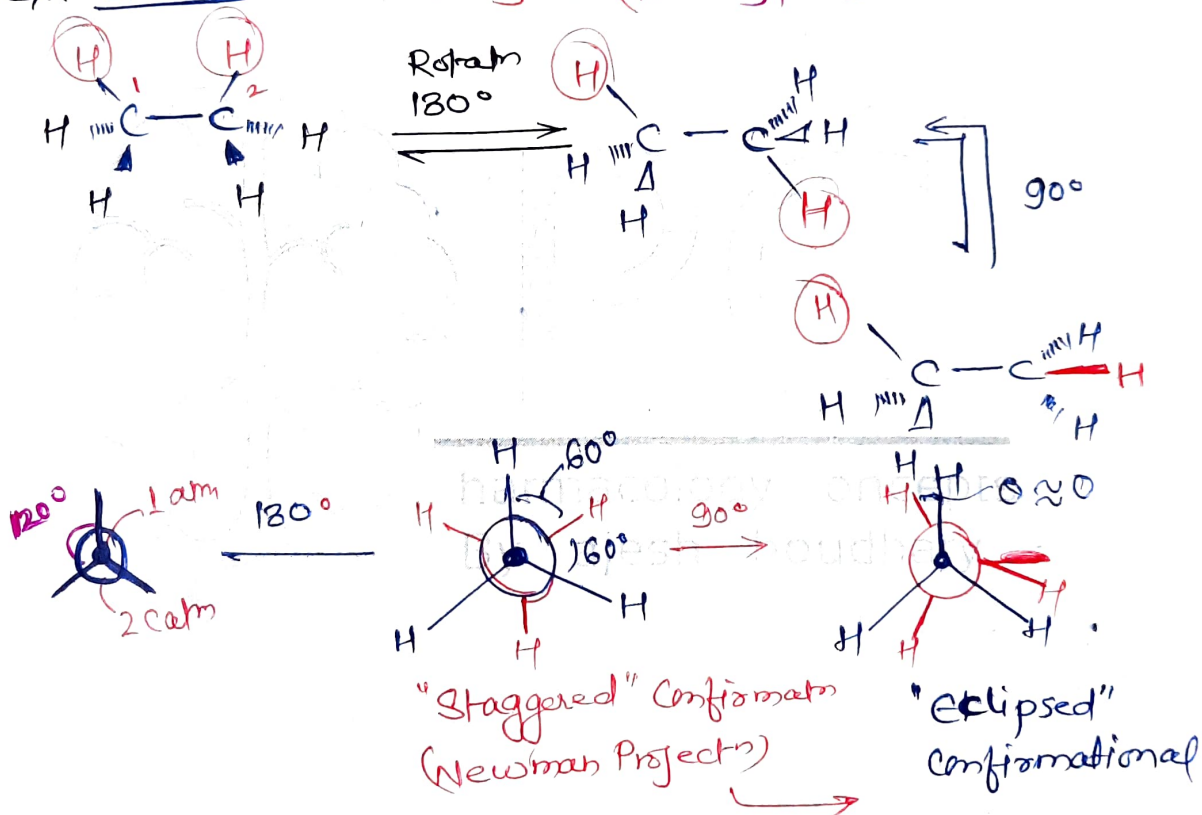 H H
1 2
H C — C H
H H
Rotatn
180°
H H
H C — C H
H H
90°
H
H
C — C H
H H
120°
1 atm
2 catm
180°
H 60°
H H
60°
H H
H
90°
H H
H θ ≈ 0
H
H H H
"Staggered" Confirmatn
(Newman Projectn)
"Eclipsed"
Confirmational